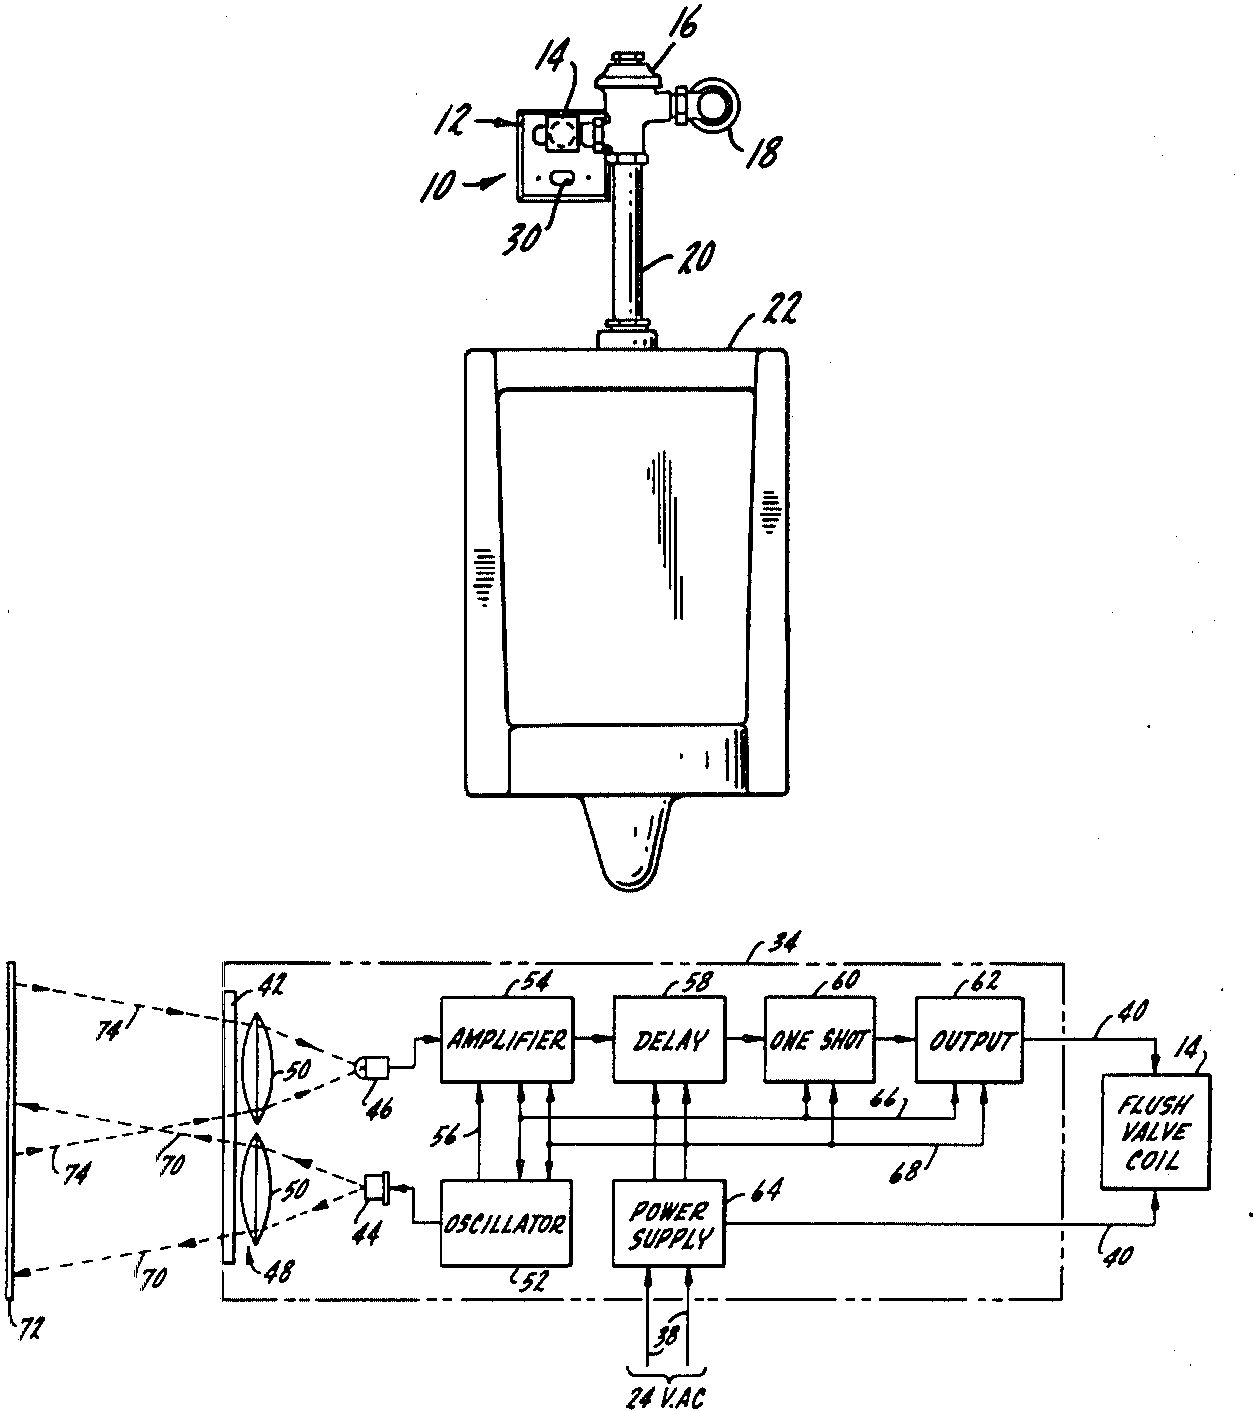 16
14
12
18
10
30
20
22
34
42
54
58
60
62
40
14
74
AMPLIFIER
DELAY
ONE SHOT
OUTPUT
50
46
66
FLUSH
VALVE
COIL
56
74
70
68
50
44
OSCILLATOR
POWER
SUPPLY
64
40
70
48
52
72
38
24 V.AC